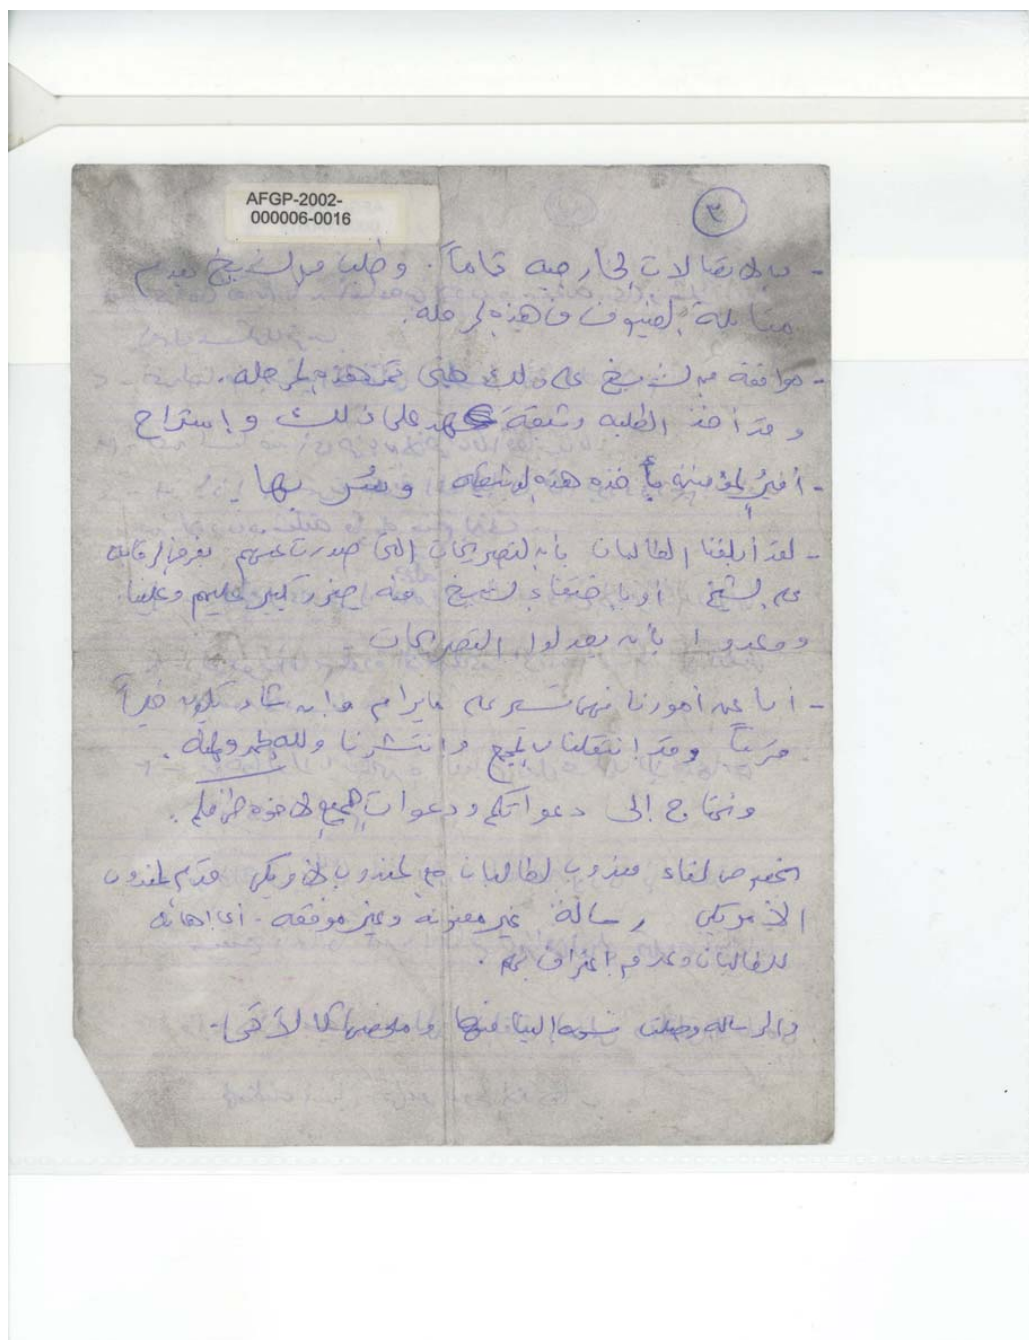 AFGP-2002-
000006-0016
٣
- بالاتصالات الخارجية تماماً. وطلب من الشيخ بعدم
مقابلة الضيوف في هذه المرحلة.
- موافقة من الشيخ على ذلك حتى تمر هذه المرحلة.
وقد أخذ الطلبه وثيقة عهد على ذلك وإستراح
- أمير المؤمنين بأخذه هذه الوثيقه وسُر بها
- لقد أبلغنا الطالبان بأن التصريحات التي صدرت عنهم بفرض الرقابه
على الشيخ أو باختفاء الشيخ فيه ضرر كبير عليهم وعلينا
ووعدوا بأن يعدلوا التصريحات
- أما عن أمورنا فهي تسير على مايرام وإن شاء يكون خيراً
قريباً وقد انتقلنا وانتشرنا ولله الحمد والمنة.
ونحتاج إلى دعواتكم ودعوات جميع الاخوه طرفكم.
بخصوص لقاء مندوب الطالبان مع المندوب الأمريكي قدم المندوب
الأمريكي رسالة غير معنونه وغير موقعه - أي اهانه
للطالبان وعدم اعتراف بهم.
والرساله وصلت نسخه الينا منها وملخصها كالأتي:-